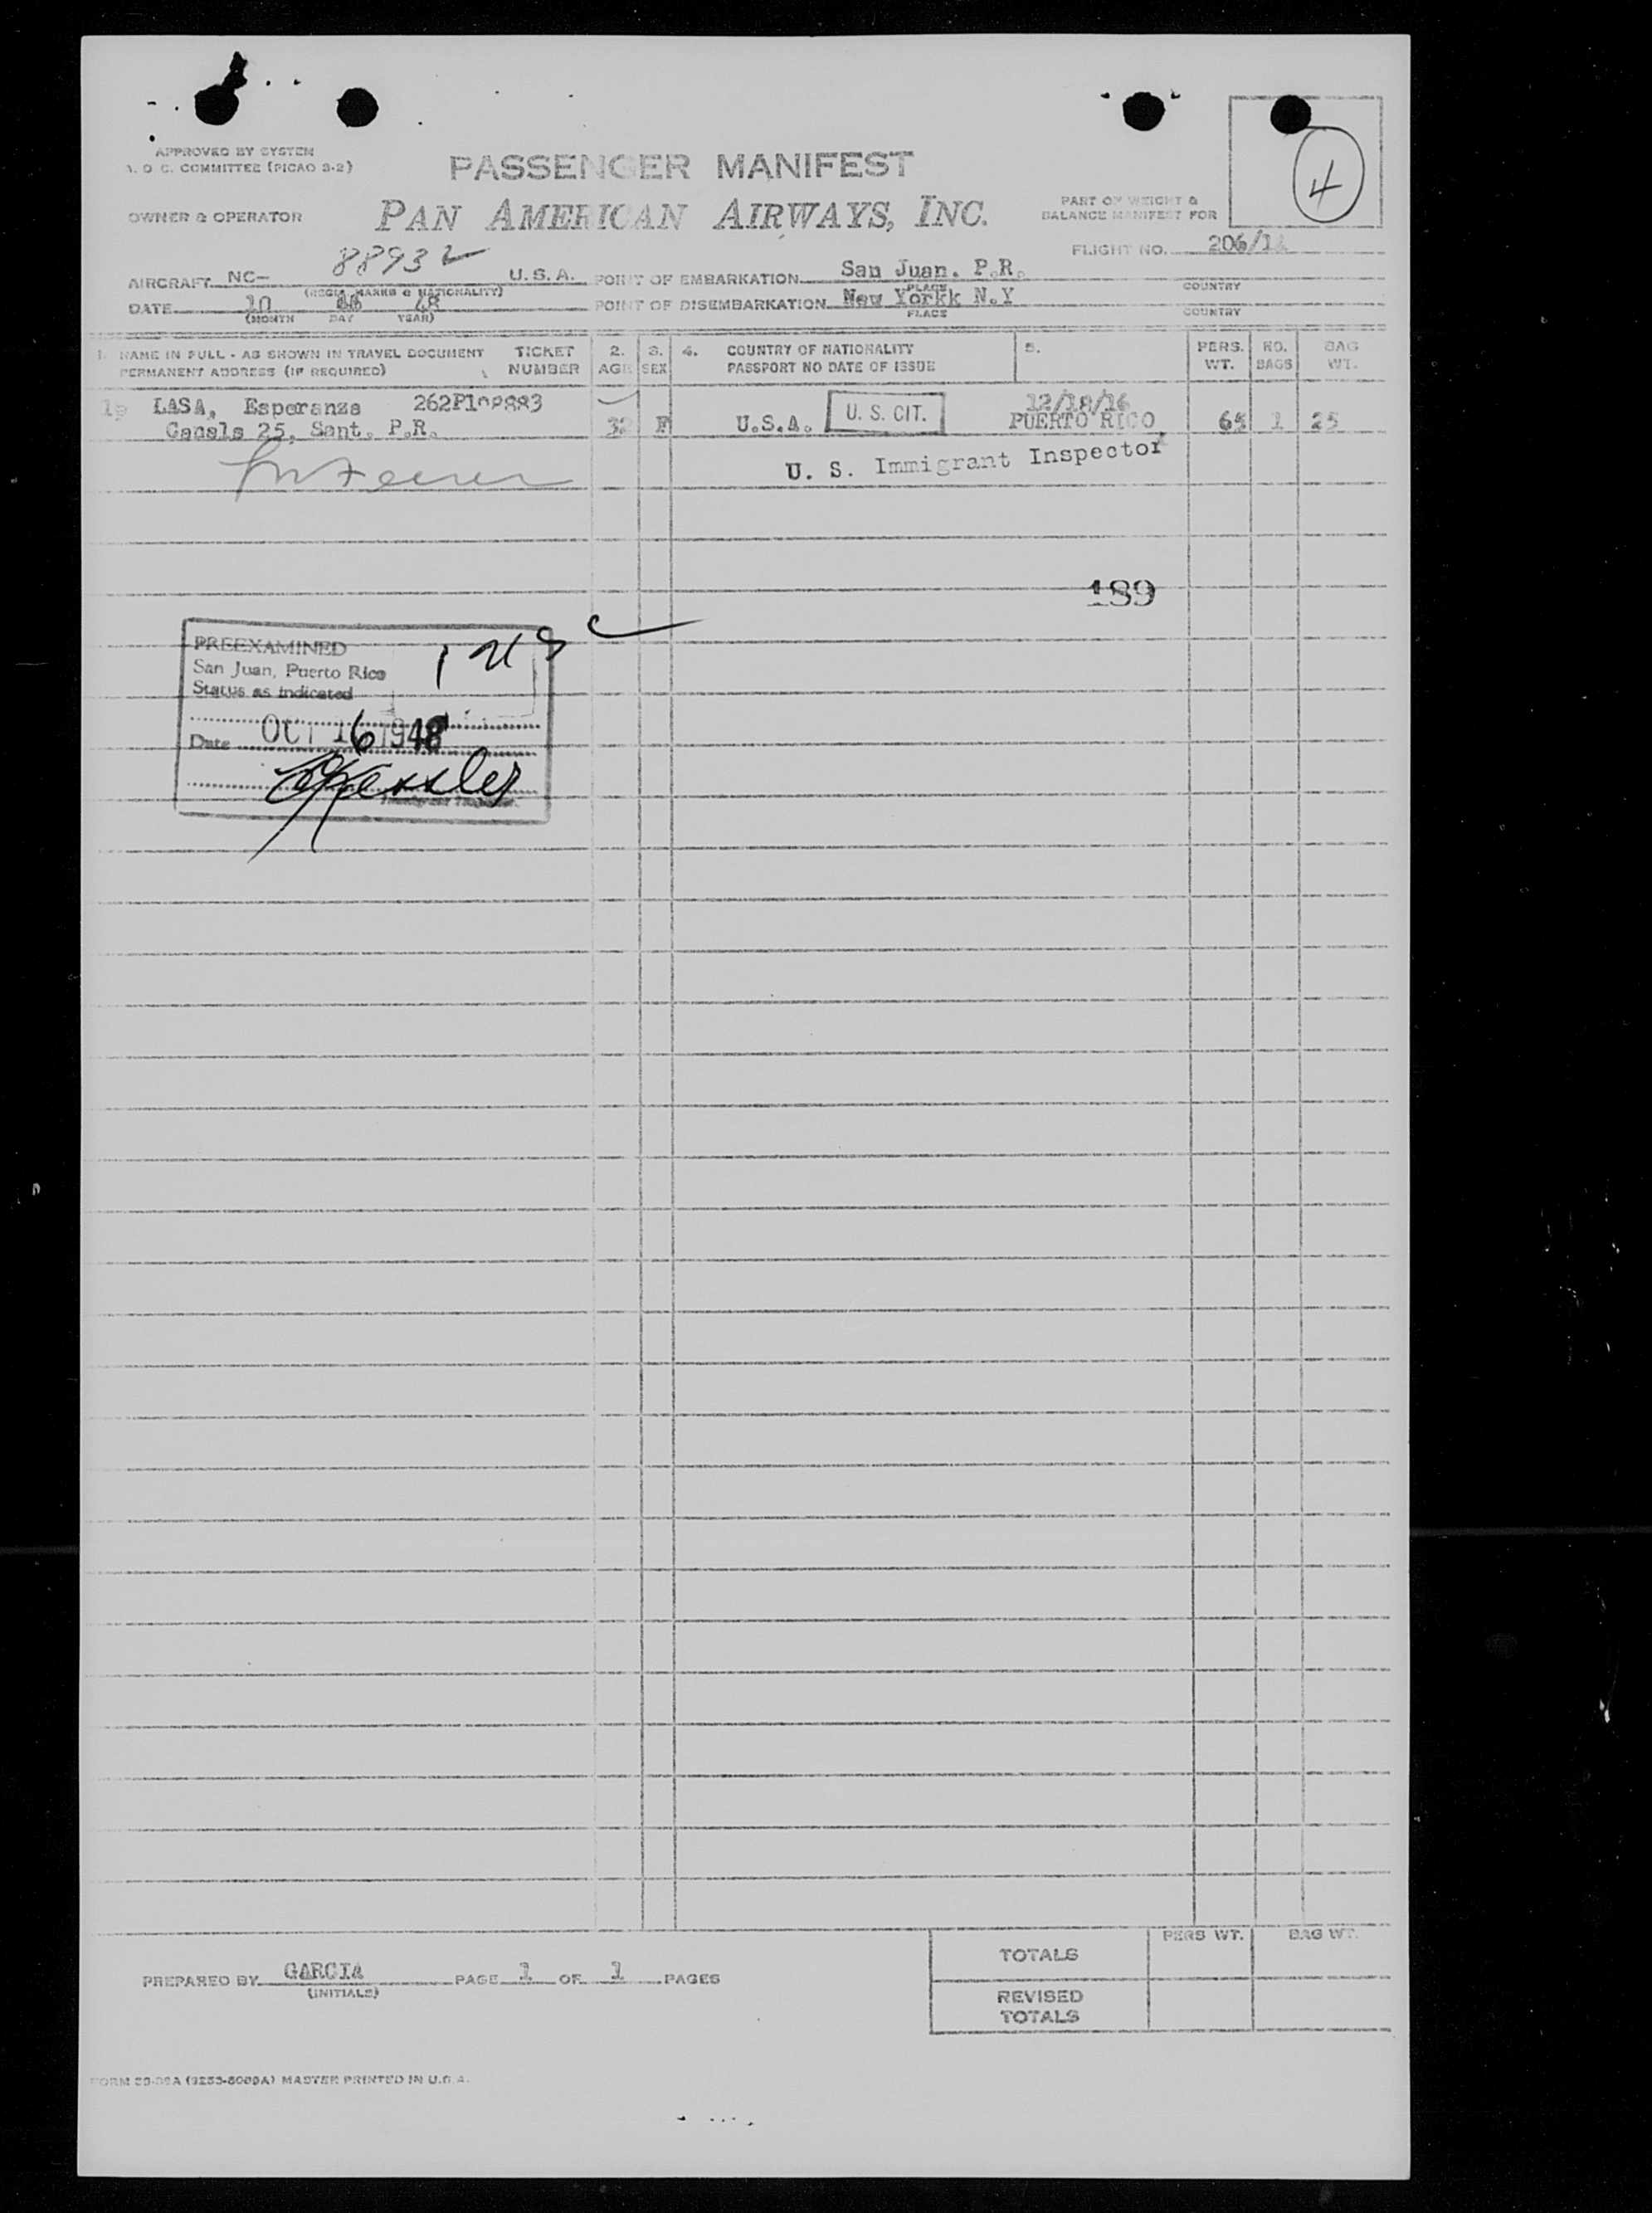 APPROVED BY SYSTEM
A. O C. COMMITTEE (PICAO S-2)
PASSENGER MANIFEST
4
OWNER & OPERATOR
PAN AMERICAN AIRWAYS, INC.
PART OF WEIGHT &
BALANCE MANIFEST FOR
FLIGHT NO. 206/
AIRCRAFT NC- 88932 U.S.A.
(REGIS. MARKS & NATIONALITY)
POINT OF EMBARKATION San Juan. P.R.
PLACE COUNTRY
DATE 10 48
(MONTH DAY YEAR)
POINT OF DISEMBARKATION New Yorkk N.Y
PLACE COUNTRY
1. NAME IN FULL - AS SHOWN IN TRAVEL DOCUMENT TICKET 2. 3. 4. COUNTRY OF NATIONALITY 5. PERS. NO. BAG
PERMANENT ADDRESS (IF REQUIRED) NUMBER AGE SEX PASSPORT NO DATE OF ISSUE WT. BAGS WT.
LASA, Esperanza 12/18/16
25, Sant. P.R. 32 F U.S.A. U. S. CIT. PUERTO RICO 1 25
U. S. Immigrant Inspector
189
PREEXAMINED
San Juan, Puerto Rico
Status as indicated
1 USC
Date OCT 16 1948
Kessler
Immigrant Inspector.
PREPARED BY GARCIA PAGE 1 OF 1 PAGES
(INITIALS)
PERS WT. BAG WT.
TOTALS
REVISED
TOTALS
MASTER PRINTED IN U.S.A.